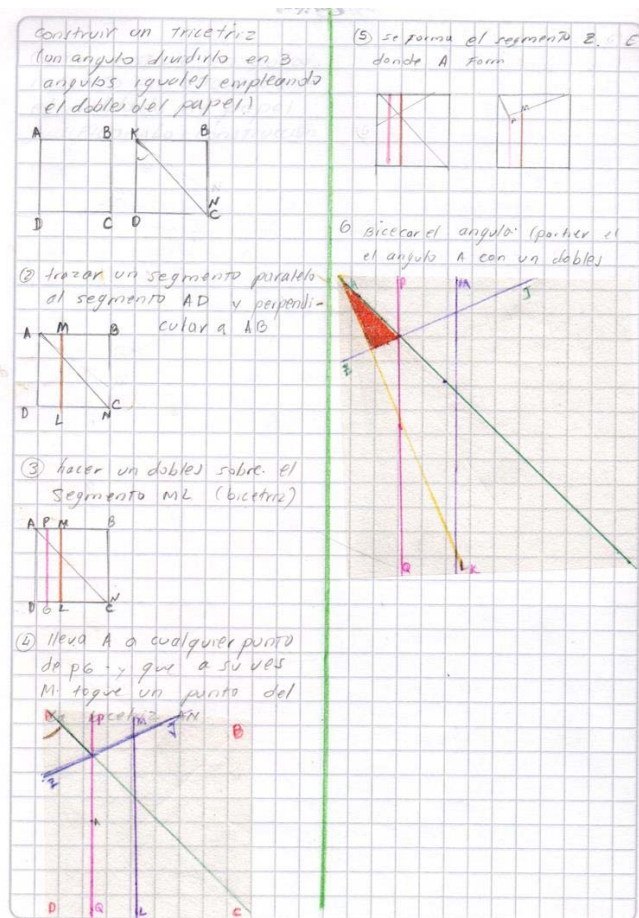 construir un tricetriz
(un angulo dividirlo en 3
angulos iguales empleando
el dobles del papel)
A B K B
D C D N C
② trazar un segmento paralelo
al segmento AD y perpendi-
cular a AB
A M B
D L N C
③ hacer un dobles sobre el
segmento ML (bicetriz)
A P M B
D G L N C
④ lleva A a cualquier punto
de pG y que a su ves
M toque un punto del
bicetriz AN
P M J B
E
A
D Q L C
⑤ se forma el segmento E
donde A form
6 Bicecar el angulo (partier el
el angulo A con un dobles
A P M J
E
Q L K